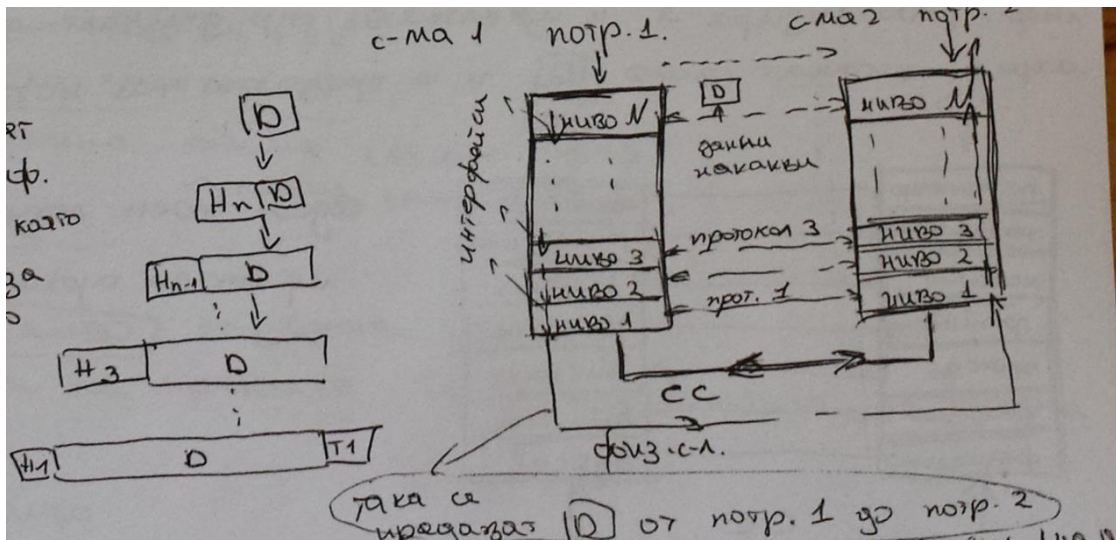 с-ма 1 потр. 1. с-ма 2 потр. 2
D
Hn D
Hn-1 D
H3 D
H1 D T1
която
за
интерфейси
ниво N
ниво 3
ниво 2
ниво 1
D
данни
някакви
протокол 3
прот. 1
ниво N
ниво 3
ниво 2
ниво 1
CC
физ. с-л.
така се
предават D от потр. 1 до потр. 2